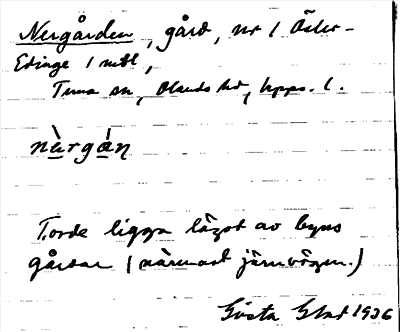 Nergården, gård, nr 1 Öster-
Edinge 1 mtl,
Tuna sn, Olands hd, Upps. l.
nὰrgá̀ɳ
Torde ligga lägst av byns
gårdar (närmast järnvägen.)
Gösta 1936